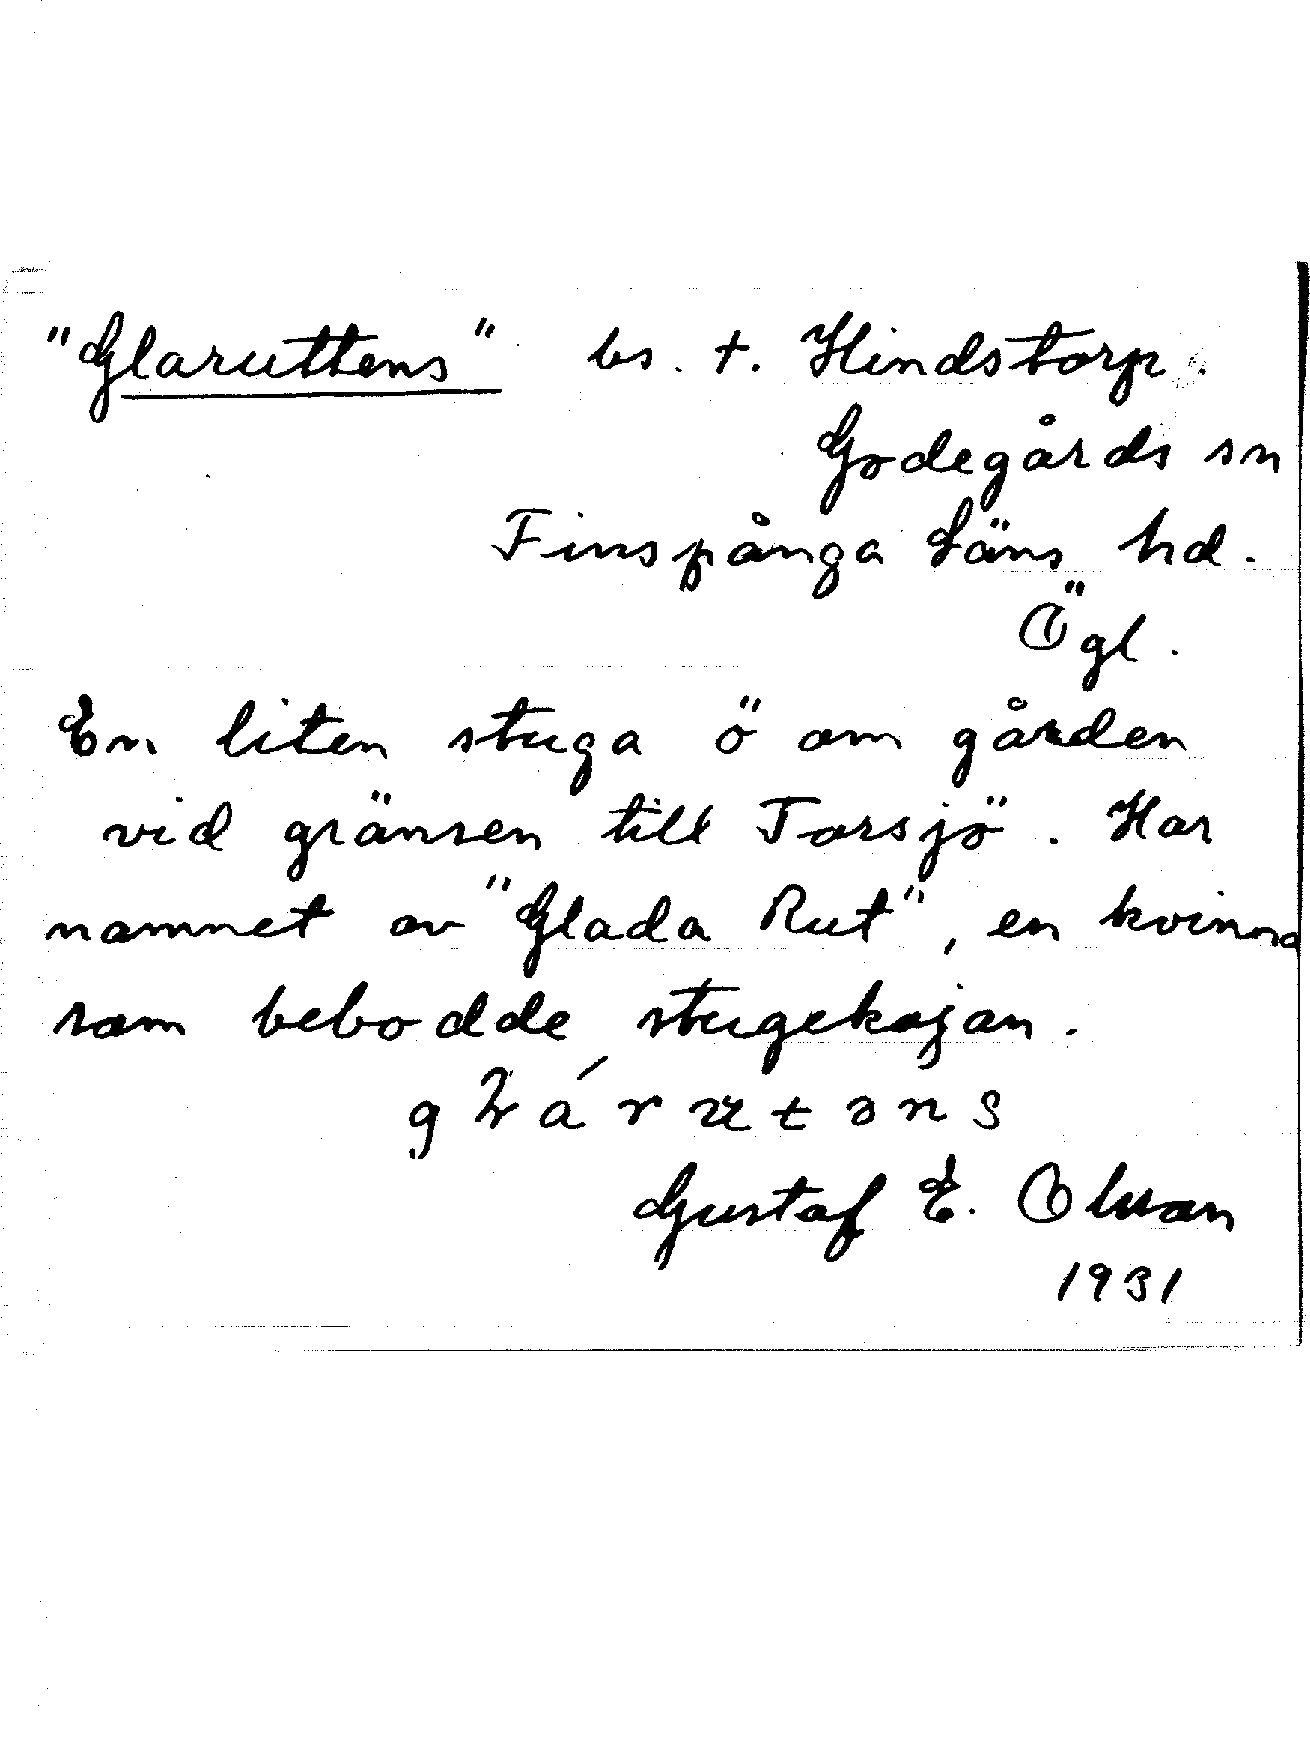 "Glaruttens" bs. t. Hindstorp.
Godegårds sn
Finspånga Läns hd.
Ögl.
En liten stuga ö om gården
vid gränsen till Torsjö. Har
namnet av "Glada Rut", en kvinna
som bebodde stugekojan.
Gustaf E. Olsson
1931